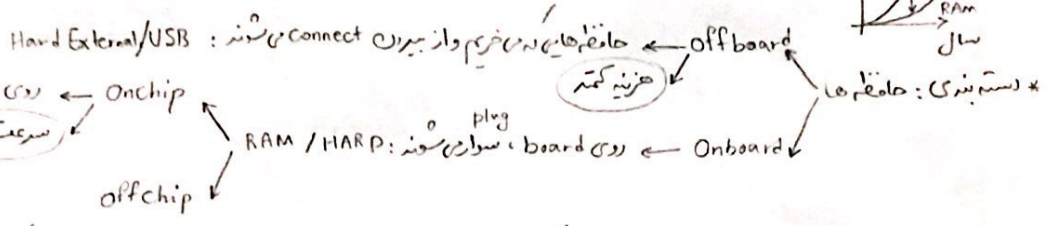 RAM
سال
* دسته بندی: حافظه ها
Offboard ← حافظه هایی که می خریم و از بیرون connect می شوند: Hard External/USB
هزینه کمتر
Onboard ← روی board، سوار می شوند: RAM / HARD
plug
Onchip ← روی
سرعت
Offchip